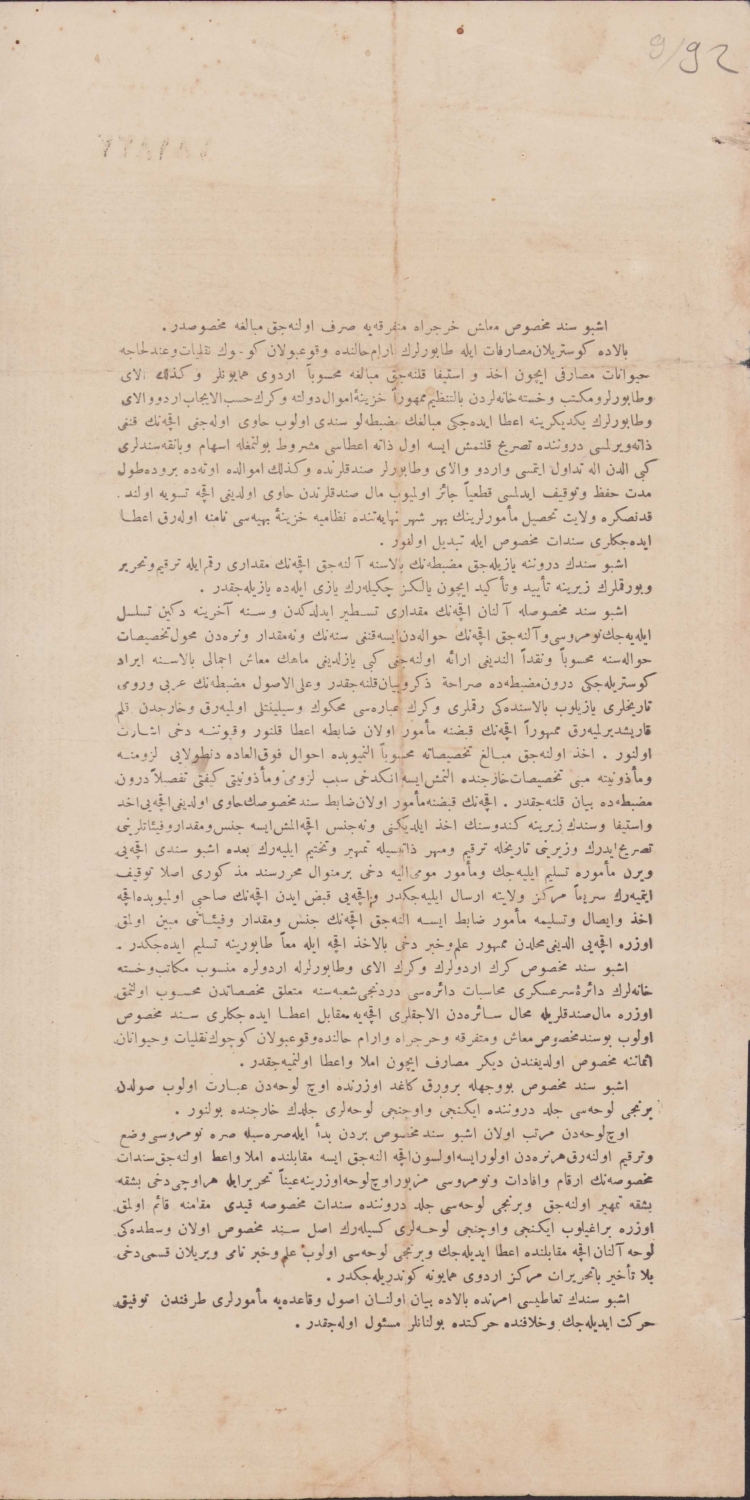 9/92
اشبو سند مخصوص معاش خرجراه متفرقه‌یه صرف اولنه‌جق مبالغه مخصوصدر .
بالاده كوستریلان مصارفات ایله طابورلرك آرام حالنده وقوعبولان كوجوك نقلیات وعندلحاجه
حیوانات مصارفی ایچون اخذ و استیفا قلنه‌جق مبالغه محسوباً اردوی همایونلر وكذلك الای
وطابورلر ومكتب وخسته‌خانه‌لردن بالتنظیم ممهوراً خزینهٔ اموال دولته وكرك حسب‌الایجاب اردو والای
وطابورلرك یكدیكرینه اعطا ایده‌جكی مبالغك مضبطه‌لو سندی اولوب حاوی اوله‌جنی اقچه‌نك قنغی
ذاته ویرلمسی دروننده تصریح قلنمش ایسه اول ذاته اعطاسی مشروط بولنمغله اسهام وبانقه سندلری
كبی الدن اله تداول ایتمسی واردو والای وطابورلر صندقلرنده وكذلك اموالده اوته‌ده بروده طول
مدت حفظ وتوقیف ایدلمسی قطعیاً جائز اولمیوب مال صندقلرندن حاوی اولدیغی اقچه تسویه اولند .
قدنصكره ولایت تحصیل مأمورلرینك بهر شهر نهایه‌تنده نظامیه خزینهٔ بهیه‌سی نامنه اوله‌رق اعطا
ایده‌جكلری سندات مخصوص ایله تبدیل اولنور .
اشبو سندك دروننه یازیله‌جق مضبطه‌نك بالاسنه آلنه‌جق اقچه‌نك مقداری رقم ایله ترقیم وتحریر
وبورقملرك زیرینه تأیید وتأكید ایچون یالكز چكیله‌رك یازی ایله‌ده یازیله‌جقدر .
اشبو سند مخصوصله آلنان اقچه‌نك مقداری تسطیر ایدلدكدن وسنه آخرینه دكین تسلسل
ایلیه‌جك نومروسی وآلنه‌جق اقچه‌نك حواله‌دن ایسه قنغی سنه‌نك ونه‌مقدار ونره‌دن محول تخصیصات
حواله‌سنه محسوباً ونقداً الندیغی ارائه اولنه‌جنی كبی یازلدیغی ماهك معاش اجمالی بالاسنه ایراد
كوستریله‌جكی درون مضبطه‌ده صراحة ذكر وبیان قلنه‌جقدر وعلی‌الاصول مضبطه‌نك عربی ورومی
تاریخلری یازیلوب بالاسنده‌كی رقملری وكرك عباره‌سی محكوك وسیلینتیلی اولمیه‌رق وخارجدن قلم
قاریشدیرلمیه‌رق ممهوراً اقچه‌نك قبضنه مأمور اولان ضابطه اعطا قلنور وقبوننه دخی اشارت
اولنور . اخذ اولنه‌جق مبالغ تخصیصاته محسوباً النمیوبده احوال فوق‌العاده دنطولایی لزومنه
ومأذونیته مبنی تخصیصات خارجنده النمش ایسه انكدخی سبب لزومی ومأذونیتی كیفیتی تفصیلاً درون
مضبطه‌ده بیان قلنه‌جقدر . اقچه‌نك قبضنه مأمور اولان ضابط سند مخصوصك حاوی اولدیغی اقچه‌یی اخذ
واستیفا وسندك زیرینه كندوسنك اخذ ایلدیكنی ونه جنس اقچه المش ایسه جنس ومقدار وفیئاتلرینی
تصریح ایدرك وزیرینی تاریخله ترقیم ومهر ذاتیسیله تمهیر وتختیم ایلیه‌رك بعده اشبو سندی اقچه‌یی
ویرن مأموره تسلیم ایلیه‌جك ومأمور مومی‌الیه دخی برمنوال محرر سند مذكوری اصلا توقیف
ایتمیه‌رك سریعاً مركز ولایته ارسال ایلیه‌جكدر واقچه‌یی قبض ایدن اقچه‌نك صاحبی اولمیوبده اقچه
اخذ وایصال وتسلیمه مأمور ضابط ایسه النه‌جق اقچه‌نك جنس ومقدار وفیئاتنی مبین اولمق
اوزره اقچه‌یی الدیغی محلدن ممهور علم وخبر دخی بالاخذ اقچه ایله معاً طابورینه تسلیم ایده‌جكدر .
اشبو سند مخصوص كرك اردولرك وكرك الای وطابورلرله اردولره منسوب مكاتب وخسته
خانه‌لرك دائرهٔ سرعسكری محاسبات دائره‌سی دردنجی شعبه‌سنه متعلق مخصصاتدن محسوب اولنمق
اوزره مال صندقلریله محال سائره‌دن الاجقلری اقچه‌یه مقابل اعطا ایده‌جكلری سند مخصوص
اولوب بو سند مخصوص معاش ومتفرقه وخرجراه وارام حالنده وقوعبولان كوجوك نقلیات وحیوانات
اثماننه مخصوص اولدیغندن دیكر مصارف ایچون املا واعطا اولنمیه‌جقدر .
اشبو سند مخصوص بووجهله برورق كاغد اوزرنده اوچ لوحه‌دن عبارت اولوب صولدن
برنجی لوحه‌سی جلد دروننده ایكنجی واوچنجی لوحه‌لری جلدك خارجنده بولنور .
اوچ لوحه‌دن مرتب اولان اشبو سند مخصوص بردن بدأ ایله صره‌سیله صره نومروسی وضع
وترقیم اولنه‌رق هر نره‌دن اولور ایسه اولسون اقچه النه‌جق ایسه مقابلنده املا واعطا اولنه‌جق سندات
مخصوصه‌نك ارقام وافادات ونومروسی مزبور اوچ لوحه اوزرینه عیناً تحریر ایله هر اوچی دخی بشقه
بشقه تمهیر اولنه‌جق وبرنجی لوحه‌سی جلد دروننده سندات مخصوصه قیدی مقامنه قائم اولمق
اوزره براغیلوب ایكنجی واوچنجی لوحه‌لری كسیله‌رك اصل سند مخصوص اولان وسطده‌كی
لوحه آلنان اقچه مقابلنده اعطا ایدیله‌جك وبرنجی لوحه‌سی اولوب علم وخبر نامی ویریلان قسمی دخی
بلا تأخیر باتحریرات مركز اردوی همایونه كوندریله‌جكدر .
اشبو سندك تعاطیسی امرنده بالاده بیان اولنان اصول وقاعده‌یه مأمورلری طرفندن توفیق
حركت ایدیله‌جك وخلافنده حركتده بولنانلر مسئول اوله‌جقدر .